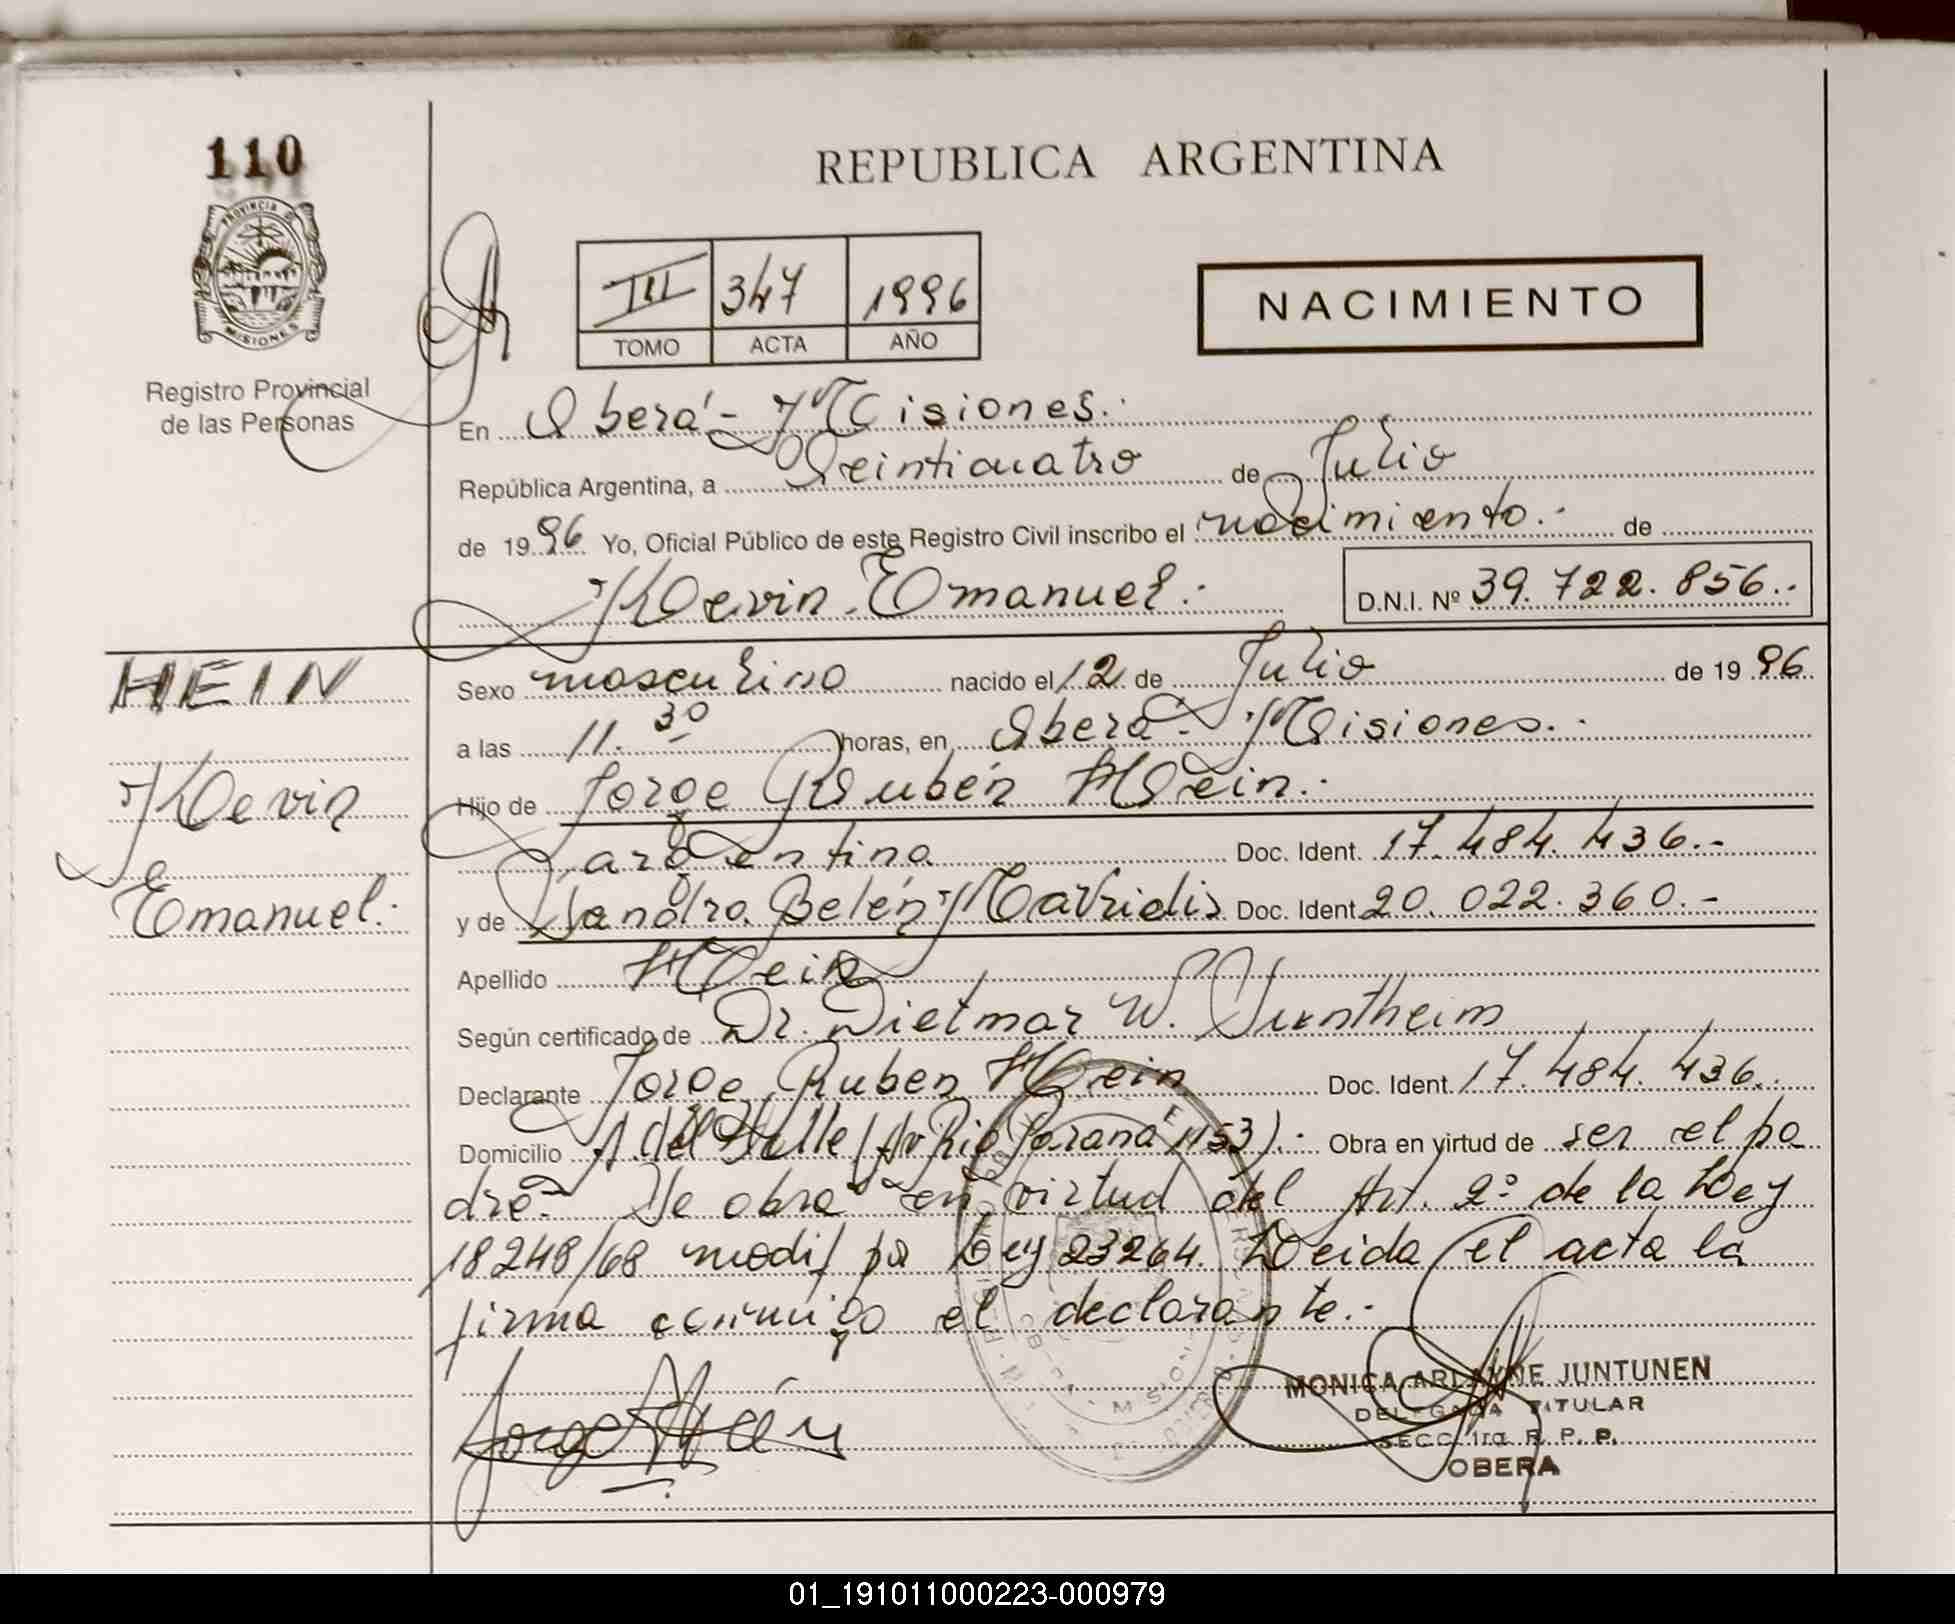 110
PROVINCIA DE
MISIONES
Registro Provincial
de las Personas
REPUBLICA ARGENTINA
III 347 1996
TOMO ACTA AÑO
NACIMIENTO
En Oberá - Misiones.-
República Argentina, a Veinticuatro de Julio
de 1996 Yo, Oficial Público de este Registro Civil inscribo el nacimiento.- de
Kevin Emanuel.- D.N.I. Nº 39.722.856.-
HEIN
Kevin
Emanuel.-
Sexo masculino nacido el 12 de Julio de 1996
a las 11.30 horas, en Oberá - Misiones.-
Hijo de Jorge Rubén Hein.-
argentino Doc. Ident. 17.484.436.-
y de Sandra Belén Mavridis Doc. Ident. 20.022.360.-
Apellido Hein
Según certificado de Dr. Dietmar W.
Declarante Jorge Ruben Hein Doc. Ident. 17.484.436.
Domicilio A. del Valle (Av Rio Paraná 1153).- Obra en virtud de ser el pa
dre.- Se obra en virtud del Art. 2º de la Ley
18248/68 modif por Ley 23264. Leida el acta la
firma conmigo el declarante.-
MONICA ARLAYNE JUNTUNEN
DELEGADA TITULAR
SECC. 1ra. R. P. P.
OBERA
01_191011000223-000979